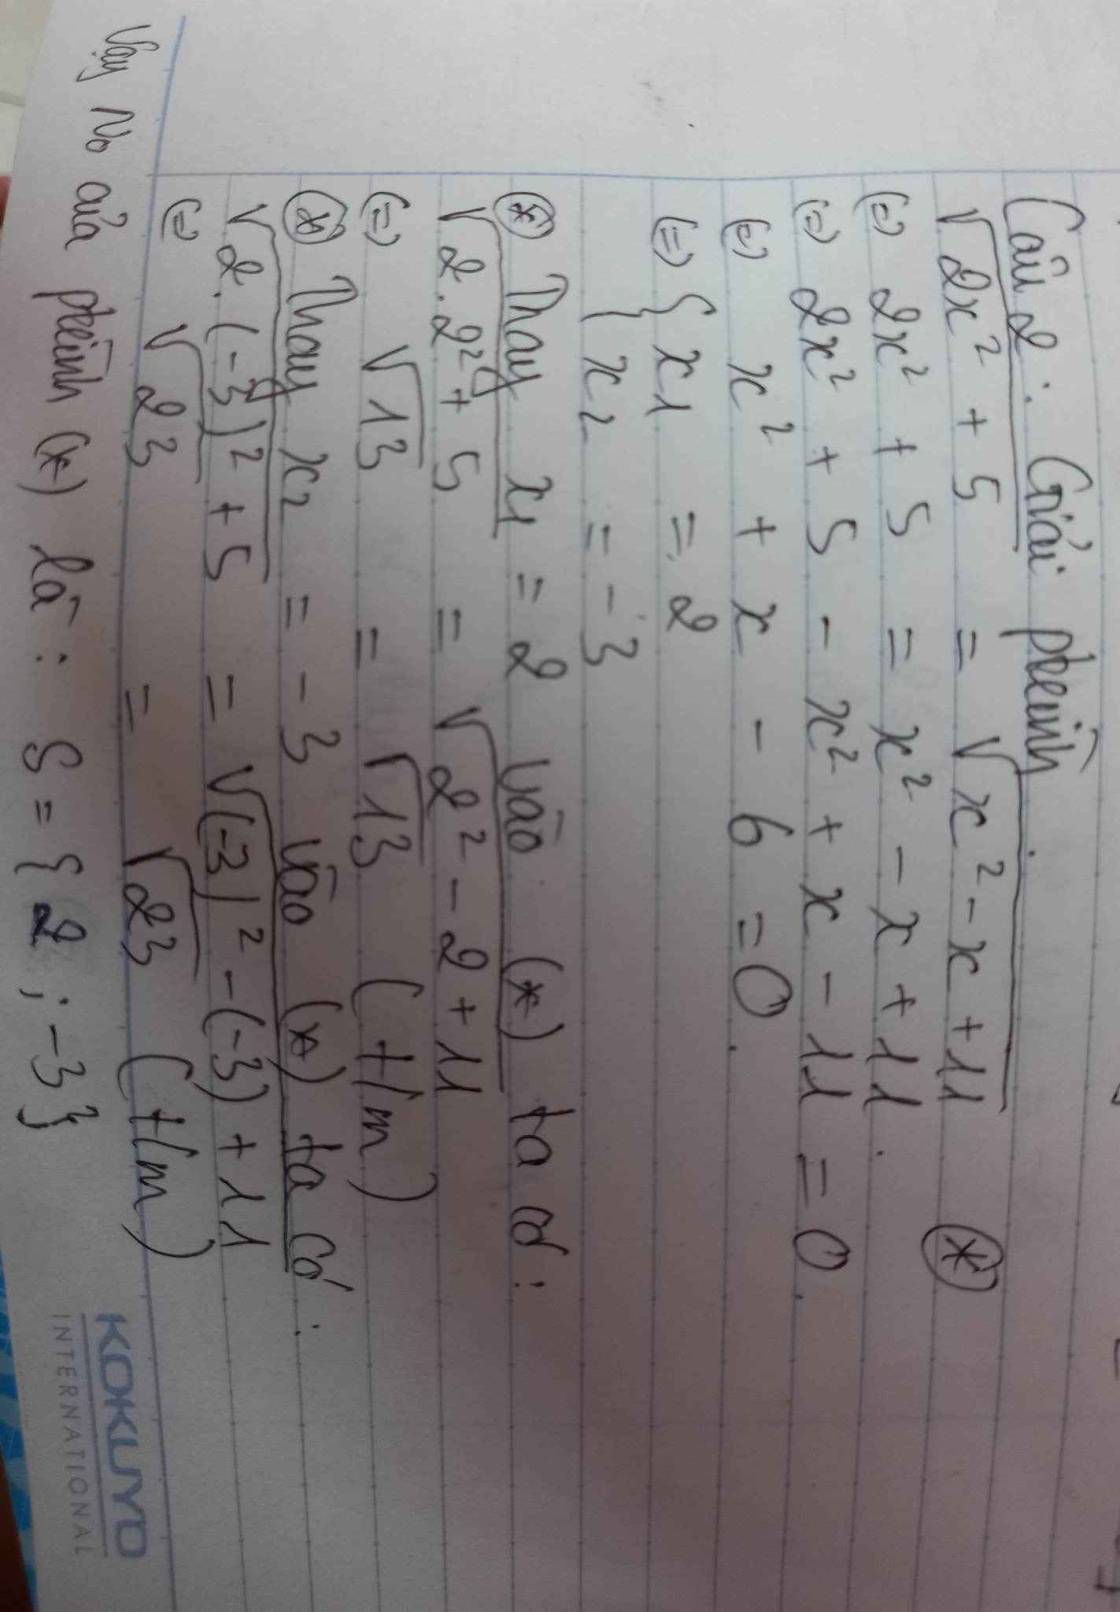 Câu 2: Giải ptrình
√2x² + 5 = √x² - x + 11 (*)
(=) 2x² + 5 = x² - x + 11.
(=) 2x² + 5 - x² + x - 11 = 0.
(=) x² + x - 6 = 0.
(=) { x1 = 2
{ x2 = -3
(*) Thay x1 = 2 vào (*) ta có:
√2.2² + 5 = √2² - 2 + 11
(=) √13 = √13 (t/m)
(*) Thay x2 = -3 vào (*) ta có:
√2.(-3)² + 5 = √(-3)² - (-3) + 11
(=) √23 = √23 (t/m)
Vậy No của ptrình (*) là: S = {2; -3}
KOKUYO
INTERNATIONAL